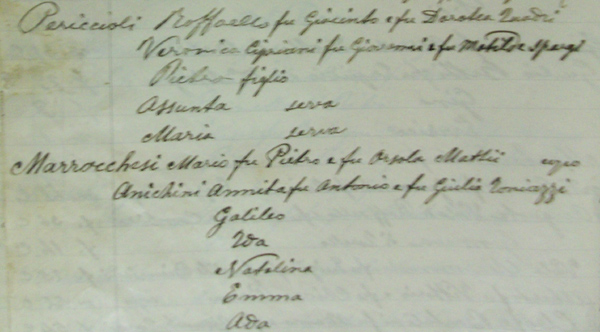 Periccioli Raffaello fu Giacinto e fu Dorotea Quadri
Veronica Cipriani fu Giovanni e fu Matilde Spargi
Pietro figlio
Assunta serva
Maria serva
Marrocchesi Mario fu Pietro e fu Orsola Mattii
Anichini Annita fu Antonio e fu Giulia
Galileo
Ida
Natalina
Emma
Ada